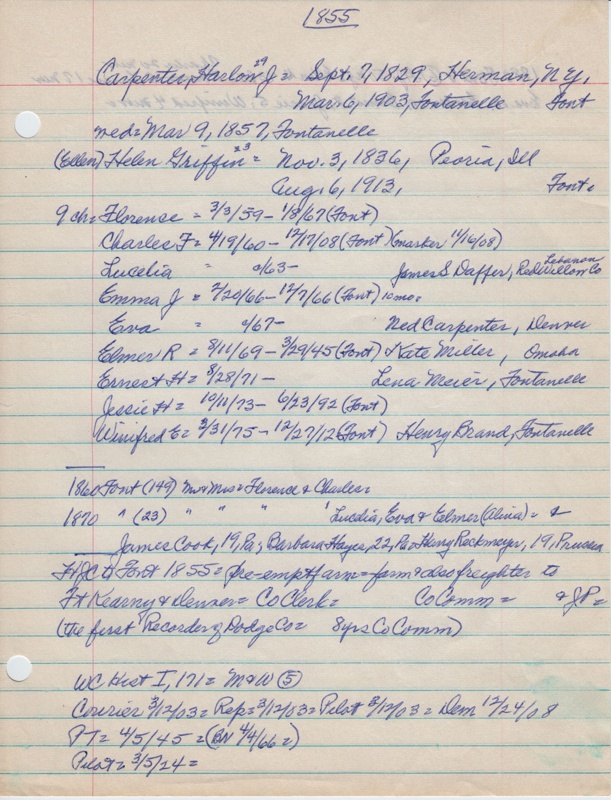 1855
Carpenter, Harlow J = Sept. 7, 1829, Herman, N.Y.
Mar. 6, 1903, Fontanelle Font
med = Mar 9, 1857, Fontanelle
(Ellen) Helen Griffin = Nov. 3, 1836, Peoria, Ill
Aug. 6, 1913, Font.
9 ch = Florence = 3/3/59 - 1/8/67 (Font)
Charles F = 4/19/60 - 12/17/08 (Font) (marker 11/16/08)
Lucelia " c/63 - James S Daffer, Lebanon Red Willow Co
Emma J = 2/20/66 - 12/7/66 (Font) 10 mo =
Eva = c/67 - Ned Carpenter, Denver
Elmer R = 8/11/69 - 3/29/45 (Font) Kate Miller, Omaha
Ernest H = 8/28/71 - Lena Meier, Fontanelle
Jessie H = 10/11/73 - 6/23/92 (Font)
Winifred E = 3/31/75 - 12/27/12 (Font) Henry Brand, Fontanelle
1860 Font (149) Mr & Mrs = Florence & Charles =
1870 " (23) " " " " Lucelia, Eva & Elmer (Alivia) = &
James Cook, 19, Pa; Barbara Hayes, 22, Pa = Henry Reckmeyer, 19, Prussia
HJC to Font 1855 = pre-empt farm = farm & also freighter to
Ft Kearny & Denver = Co Clerk = Co Comm = & J P =
(the first Recorder of Dodge Co = 8 yrs Co Comm)
WC Hist I, 171 = M & W (5)
Courier 3/12/03 = Rep = 3/12/03 = Pilot 3/12/03 = Dem 12/24/08
PT = 4/5/45 = (BN 4/4/66 =)
Pilot = 3/5/24 =